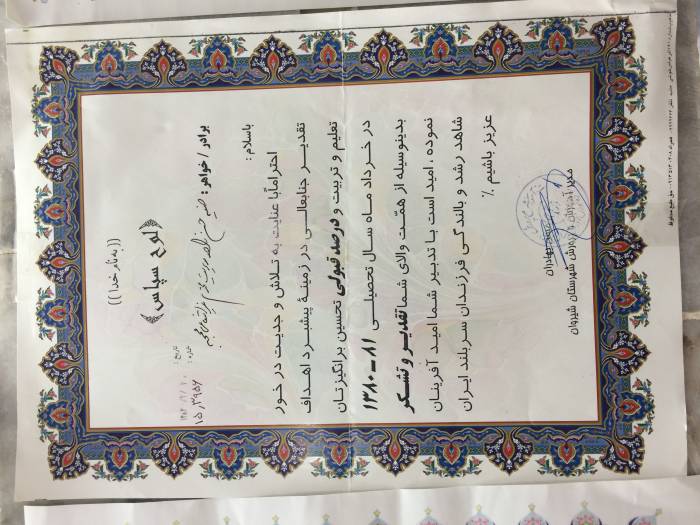 ((( به نام خدا )))
تاریخ :
شماره : ۱۵٫۳۹۵۶
《 لوح سپاس 》
برادر / خواهر :
باسلام :
احتراماً با عنایت به تلاش و جدیت در خور
تقدیر جنابعالی در زمینهٔ پیشبرد اهداف
تعلیم و تربیت و درصد قبولی تحسین برانگیزتان
در خرداد ماه سال تحصیلی ۸۱ - ۱۳۸۰
بدینوسیله از همت والای شما تقدیر و تشکر
نموده ، امید است با تدبیر شما امید آفرینان
شاهد رشد و بالندگی فرزندان سربلند ایران
عزیز باشیم ٪
مدیر آموزش و پرورش شهرستان شیروان